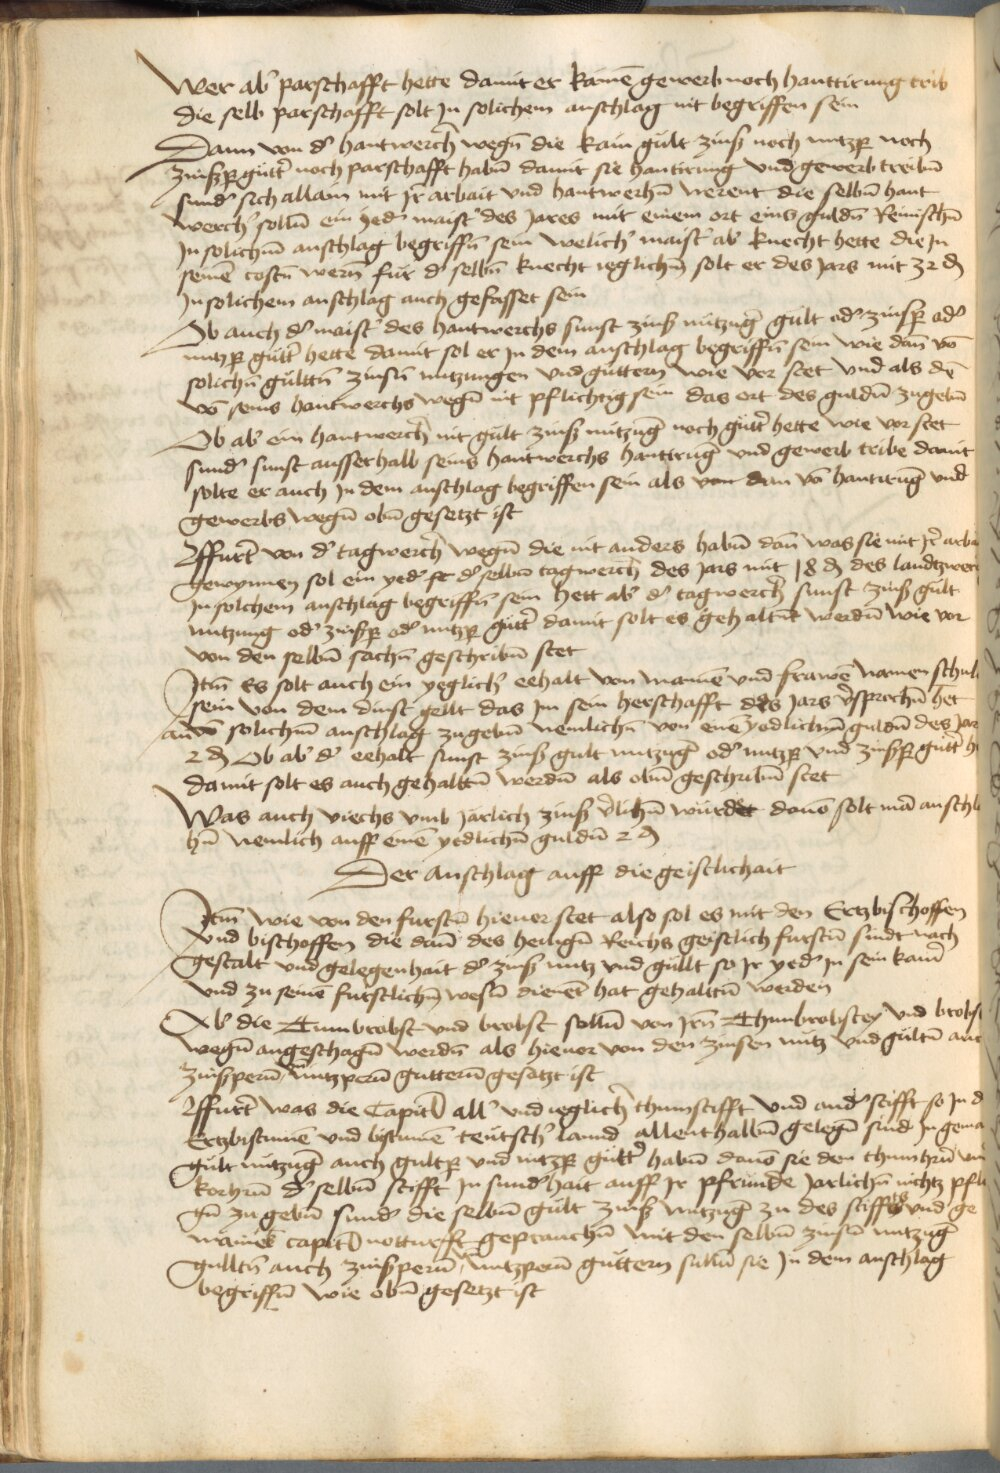 Wer ab' parschafft hette damit er kainē gewerb noch hanttirung trib
die selb parschafft solt in solichem anschlag nit begriffen sein
Dann von d' hantwerch' wegn̄ die kain gült zinß noch nutzp̄ noch
zinßp̄ gütt' noch parschafft habn̄ damit sie hantirung und gewerb treibn̄
sund' sich allain mit Jr arbait und hantwerhn̄ nerent die selbn̄ hant
werch' sollñ ein yed' maist' des Jares mit einem ort eins guldn̄ Reinischn̄
Jn solichn̄ anschlag begriffn̄ sein welich' maist' ab' knecht hette die Jn
seinē costn̄ wern̄ für d' selbn̄ knecht ieglichn̄ solt er des Jars mit 32 ₰
Jn solichem anschlag auch gefasset sein
Ob auch d' maist' des hantwerchs sunst zinß nutzūg gült od' zinßp̄ od'
nutzp̄ gütt' hette damit sol er Jn dem anschlag begriffn̄ sein wie dan̄ vō
solichn̄ gülttn̄ zinsn̄ nutzungen und güttern wie vor stet und als dē
vō seins hantwerchs wegn̄ nit pflichtig sein das ort des guldn̄ zugebn̄
Ob ab' ein hantwerch' nit gült zinß nutzūg noch gütt' hette wie vor stet
sund' sunst ausserhalb seins hantwerchs hanttirūg und gewerb tribe damit
solte er auch Jn dem anschlag begriffen sein als von dan vō hantirūg und
gewerbs wegn̄ obn̄ gesetzt ist
Ffurt' von d' tagwerch' wegn̄ die nit anders habn̄ dan̄ was sie mit Jr arbai
gewynnen sol ein yed' d' selbn̄ tagwerch' des Jars mit 18 ₰ des landtzwer
Jn solchem anschlag begriffn̄ sein hett ab' d' tagwerch' sunst zinß gült
nutzung od' zinßp̄ od' nutzp̄ gütt' damit solt es gehaltn̄ werdn̄ wie vor
von den selbn̄ sachn̄ geschribn̄ stet
Jtm̄ Es solt auch ein yeglich' eehalt von mannē und frawē namen schul
sein von dem dinst gellt das Jm sein herschafft des Jars v'sprochn̄ het
an solichn̄ anschlag zugebn̄ nemlichn̄ von einē yedlichn̄ guldn̄ des Jar
2 ₰ Ob ab' d' eehalt sunst zinß gult nutzūg od' nutzp̄ und zinßp̄ gütt' h
damit solt es auch gehalttn̄ werdn̄ als obn̄ geschribn̄ stet
Was auch viechs umb Järlich zinß v'lihn̄ würdet dauō solt mā anschl
hn̄ nemlich auff einē yedlichn̄ guldn̄ 2 ₰
Der anschlag auff die geistlichait
Jtm̄ wie von den furstn̄ hieuor stet also sol es mit den Ertzbischoffen
und bischoffen die dan̄ des heilign̄ Reichs geistlich furstn̄ sindt nach
gestalt und gelegenhait d' zinß nutz und güllt so Jr yed' Jn sein kam'
und zu seinē furstlichn̄ wesn̄ dienet hat gehalttn̄ werden
Ob die Tumbrobst und brobst sollñ von Jrn̄ Thumbrobstey und brobst
wegn̄ angeschagn̄ werdn̄ als hieuor von den zinsen nutz und gültn̄ auc
zinßpern̄ nutzpern̄ guttern̄ gesatzt ist
Ffurt' was die Capitl all' und ieglich' thumstifft und and' stifft so Jn d
Ertzbistumen und bistumen teutsch' lannd allenthalbn̄ gelegn̄ sind Jn gema
gült nutzūg auch gultp̄ und nutzp̄ gütt' habn̄ dauō sie den thumhrn̄ un
korhrn̄ d' selbn̄ stifft Jn sund'hait auff Jr pfründe Jarlichn̄ nichtz pfli
gn̄ zu gebn̄ sund' die selbn̄ gült zinß nutzūg zu des stiffts und ge
mainēs capitl notturfft geprauchn̄ mit den selbn̄ zinsn̄ nutzūg
gülltn̄ auch zinßpern̄ nutzpern̄ güttern sullñ sie Jn dem anschlag
begriffn̄ wie obn̄ gesetzt ist